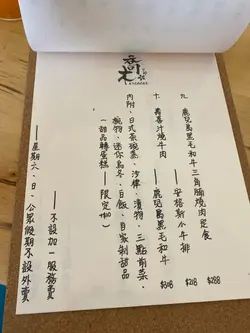 吞下肚
KITCHENS
九 鹿兒島黑毛和牛三角腩燒肉定食 $288
——安格斯小牛排 $208
十 壽喜汁燒牛肉——鹿兒島黑毛和牛 $218
內附、日式茶碗蒸、沙律、漬物、三點前菜、
椀物、迷你烏冬、白飯、自家制甜品
(甜品轉蛋糕——限定 +40)
——不設加一服務費
——星期六、日、公眾假期不設外賣